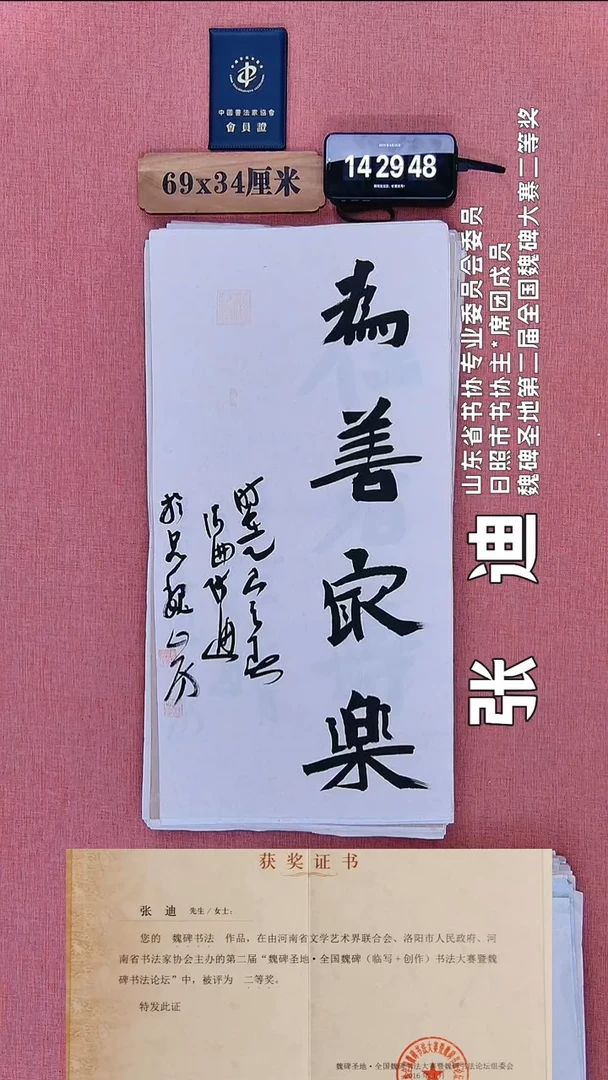 中國書法家協會
會員證
69x34厘米
14 29 48
為善最樂
於
山东省书协专业委员会委员
日照市书协主*席团成员
魏碑圣地第二届全国魏碑大赛二等奖
张 迪
获奖证书
张 迪 先生/女士：
您的 魏碑书法 作品，在由河南省文学艺术界联合会、洛阳市人民政府、河
南省书法家协会主办的第二届“魏碑圣地·全国魏碑（临写+创作）书法大赛暨魏
碑书法论坛”中，被评为 二等奖。
特发此证
魏碑圣地·全国魏碑书法大赛暨魏碑书法论坛组委会